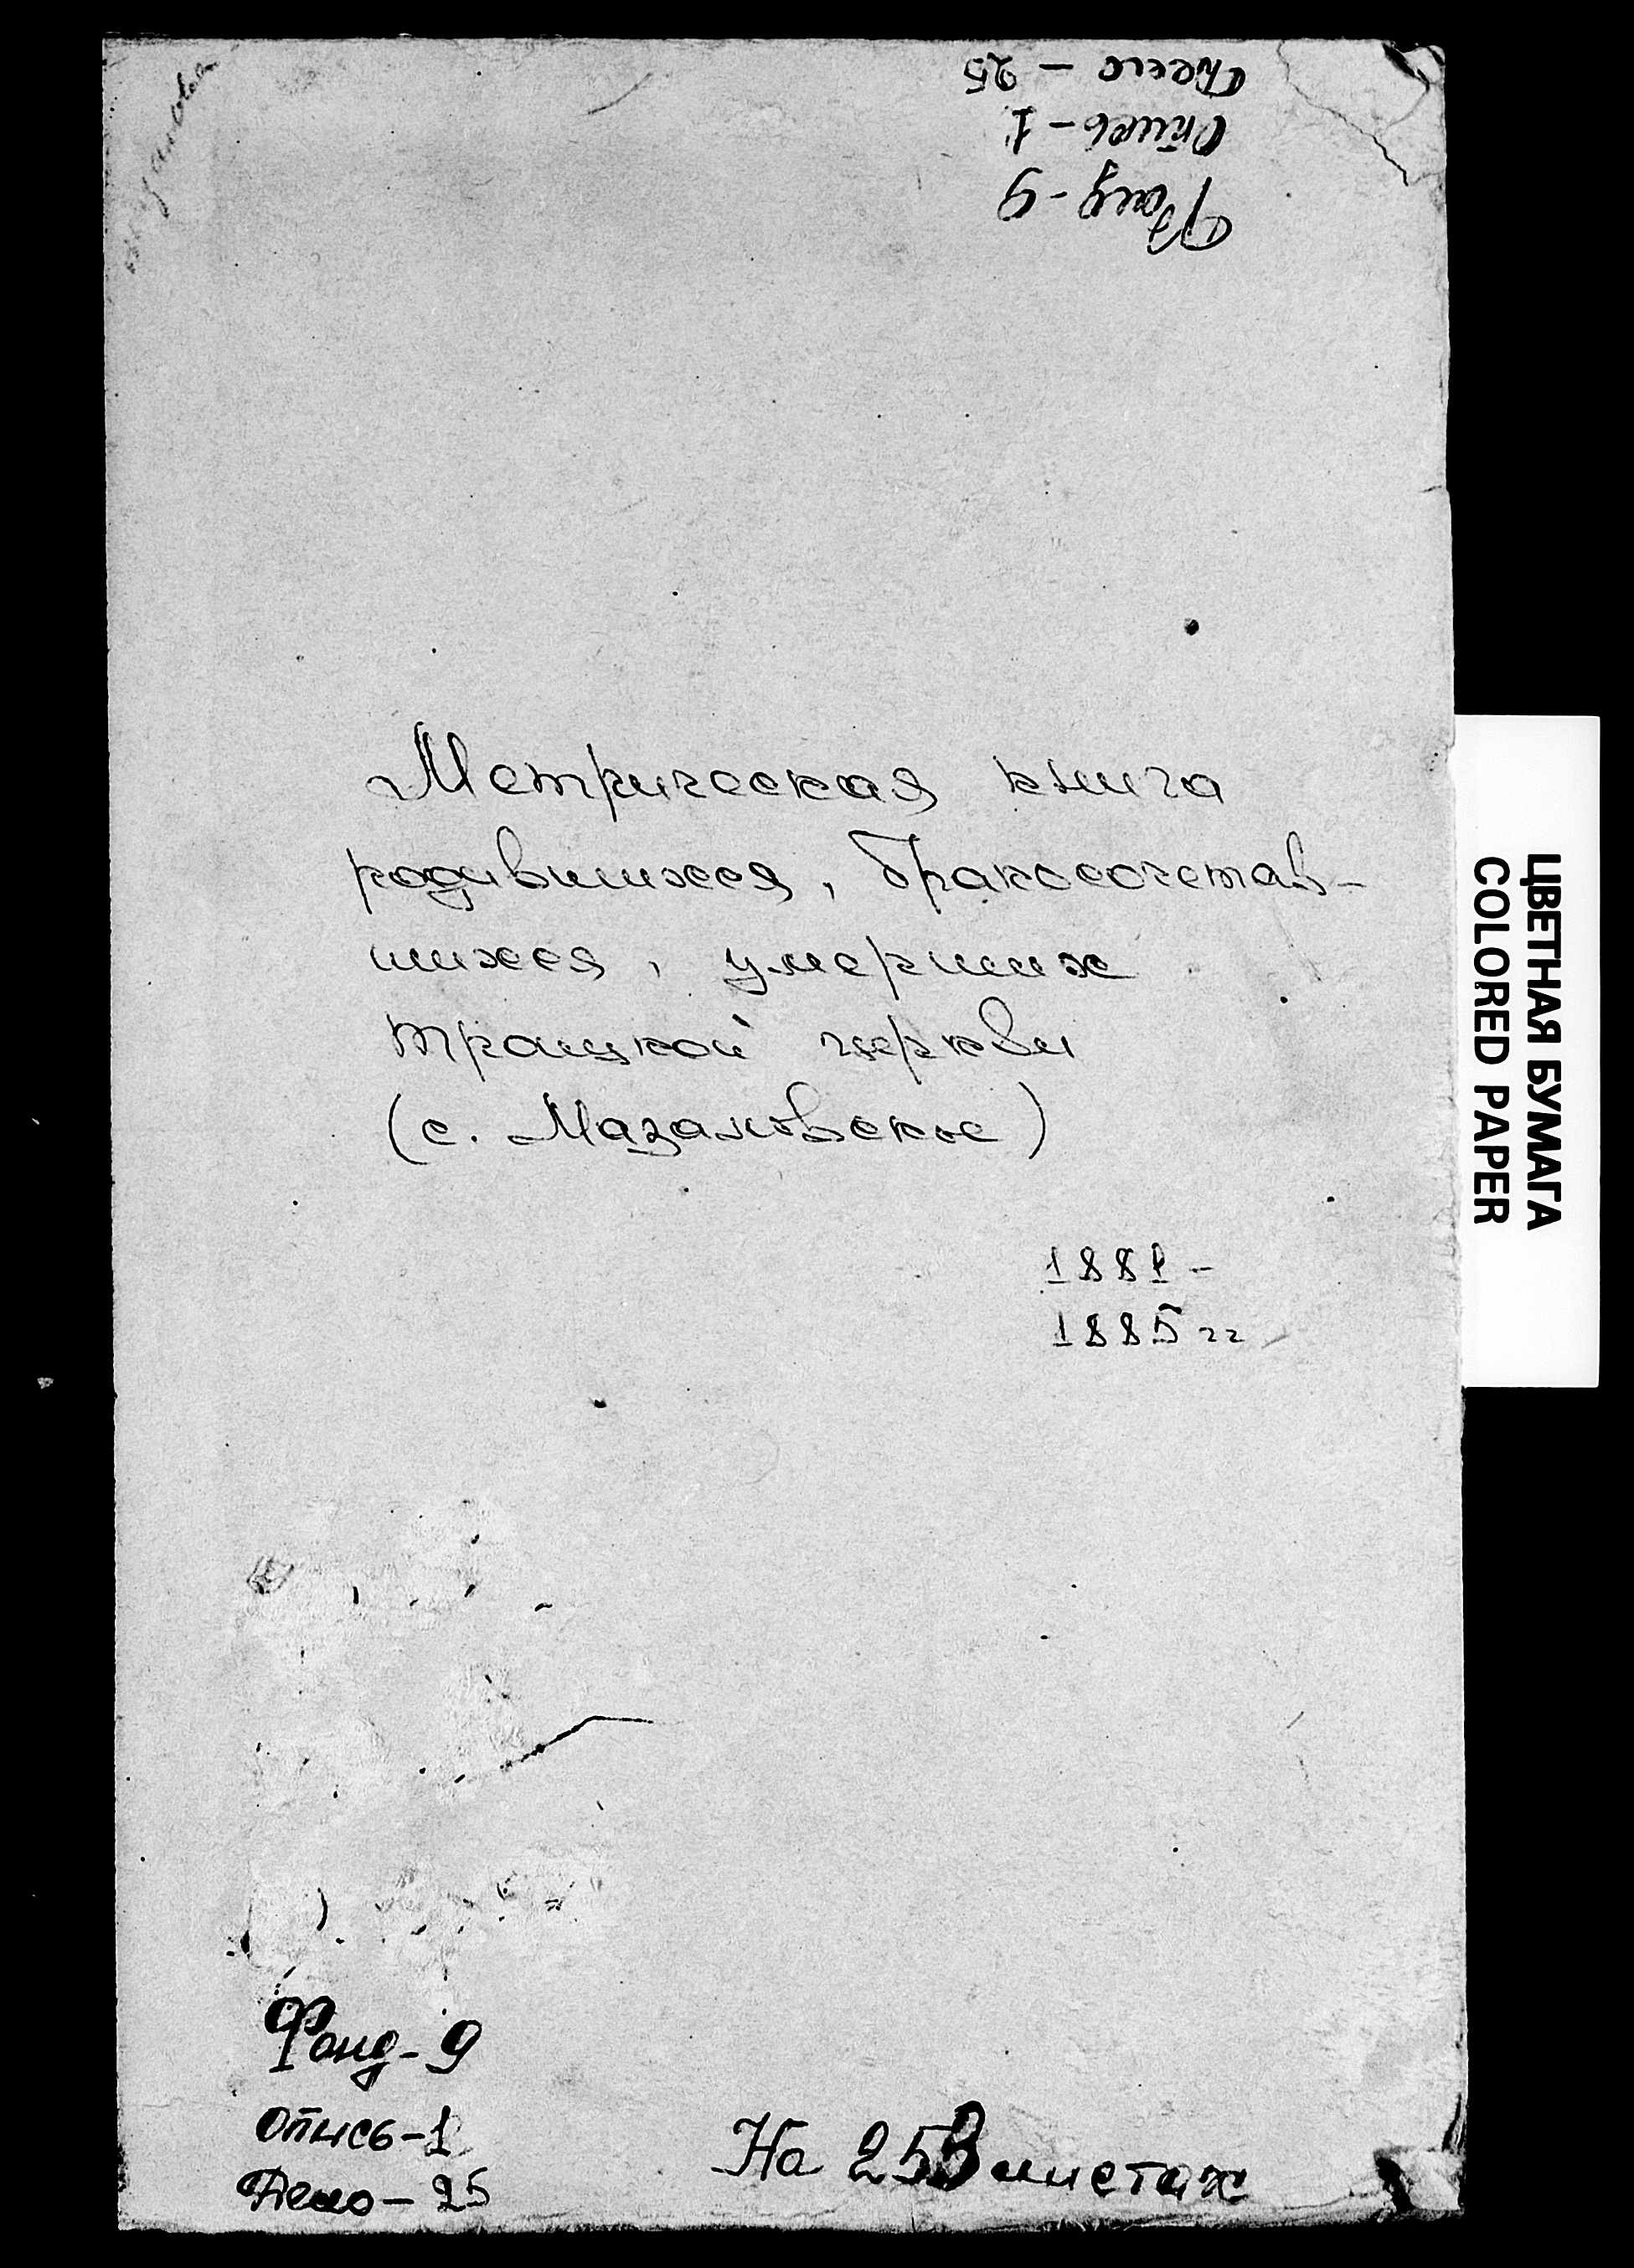 Дело – 25
Опись – 1
Фонд - 9
Метрическая книга
родившихся, бракосочетав-
шихся, умерших
троицкой церкви
(с. Мазановское)
1881 -
1885 гг
ЦВЕТНАЯ БУМАГА
COLORED PAPER
Фонд - 9
Опись - 1
Дело - 25
На 253 листах